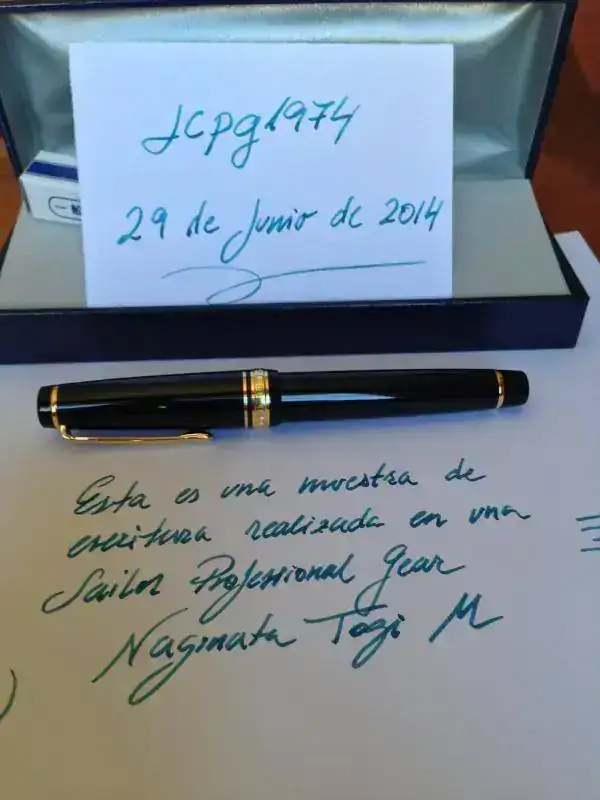 JCPg1974
29 de Junio de 2014
Esta es una muestra de
escritura realizada en una
Sailor Professional Gear
Naginata Togi M